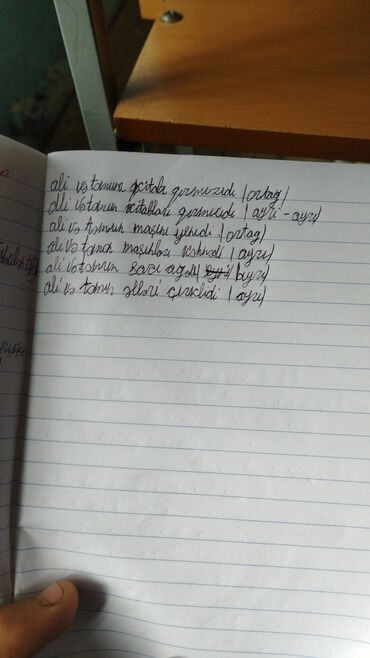 ali və tomun kitabı qırmızıdı (ortag)
ali və tomun kitabları qırmızıdı (ayrı-ayrı)
ali və tomun maşını yenidi (ortag)
ali və tomun maşınları yenidi (ayrı)
ali və tomun sacı agdı (ayrı)
ali və tomun əlləri çirklidi (ayrı)